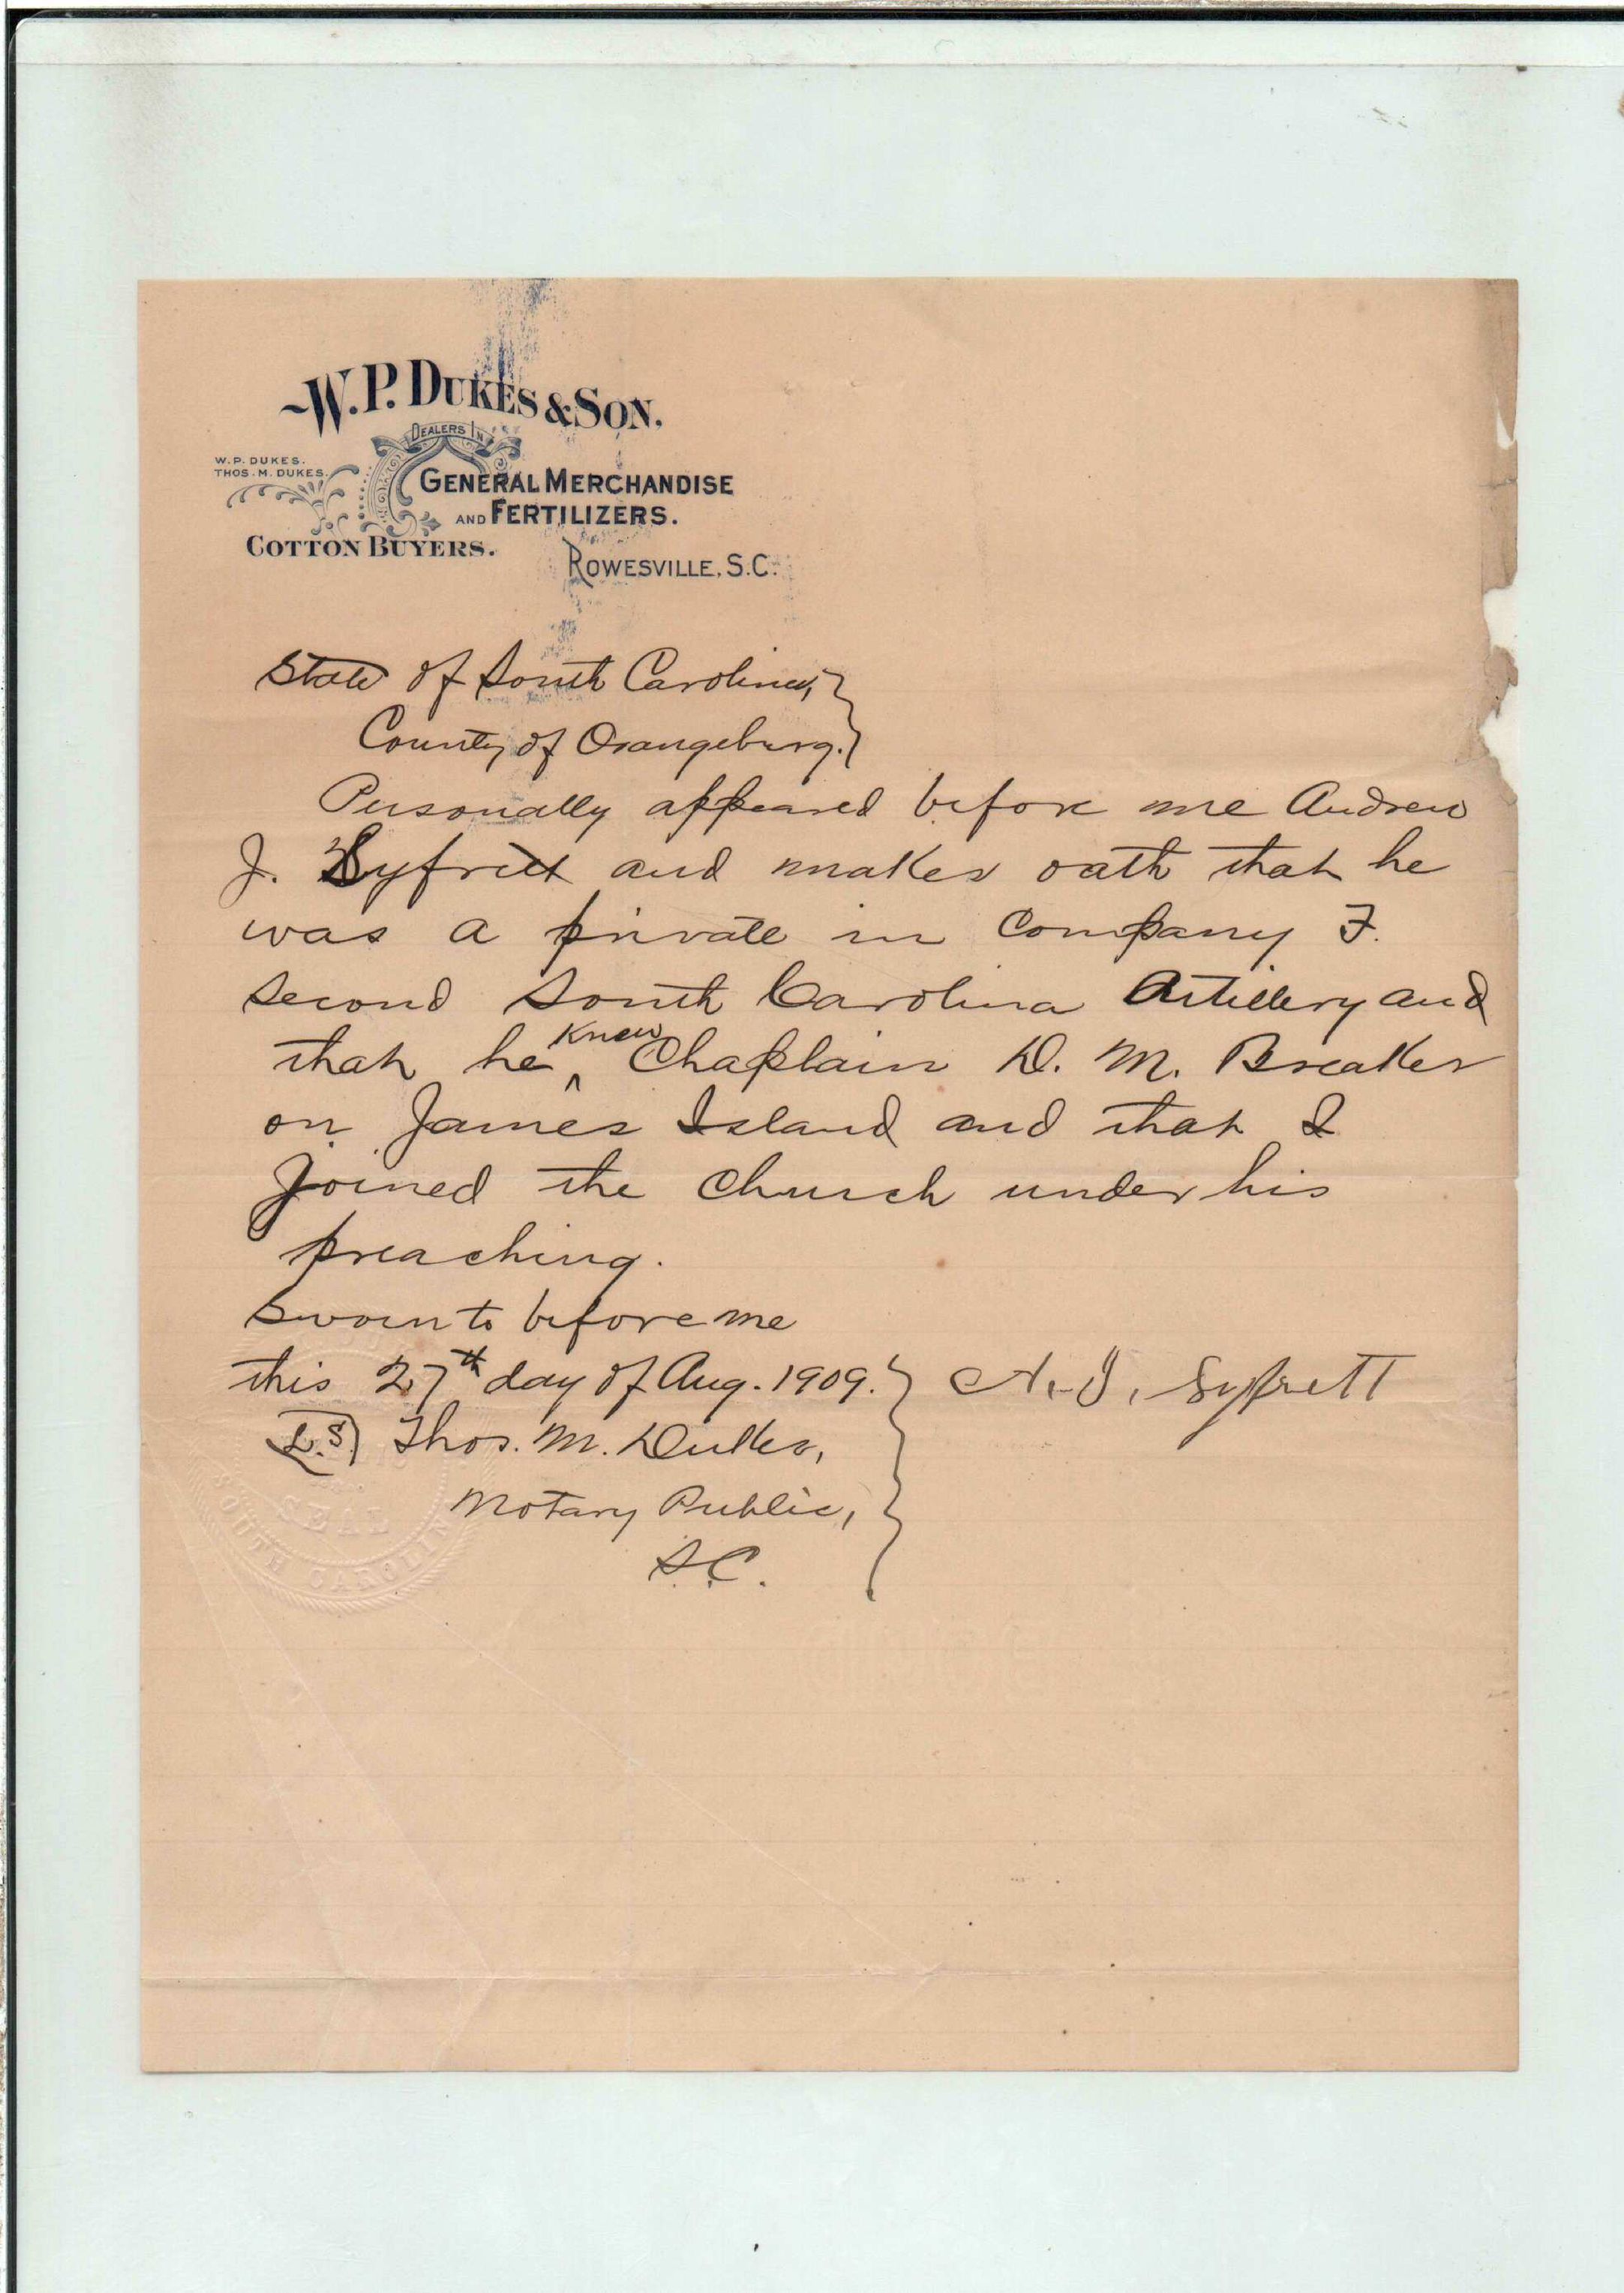 W.P. DUKES & SON.
DEALERS IN
W.P. DUKES.
THOS. M. DUKES.
GENERAL MERCHANDISE
AND FERTILIZERS.
COTTON BUYERS.
ROWESVILLE, S.C.
State of South Carolina,
County of Orangeburg.
Personally appeared before me Andrew
J. Syfrett and makes oath that he
was a private in Company F.
Second South Carolina Artillery and
that he ^ knew Chaplain D. M. Breaker
on James Island and that I
Joined the Church under his
preaching.
Sworn to before me
this 27th day of Aug. 1909. A. J. Syfrett
L.S. Thos. M. Dukes,
Notary Public,
S.C.
SEAL
SOUTH CAROLINA